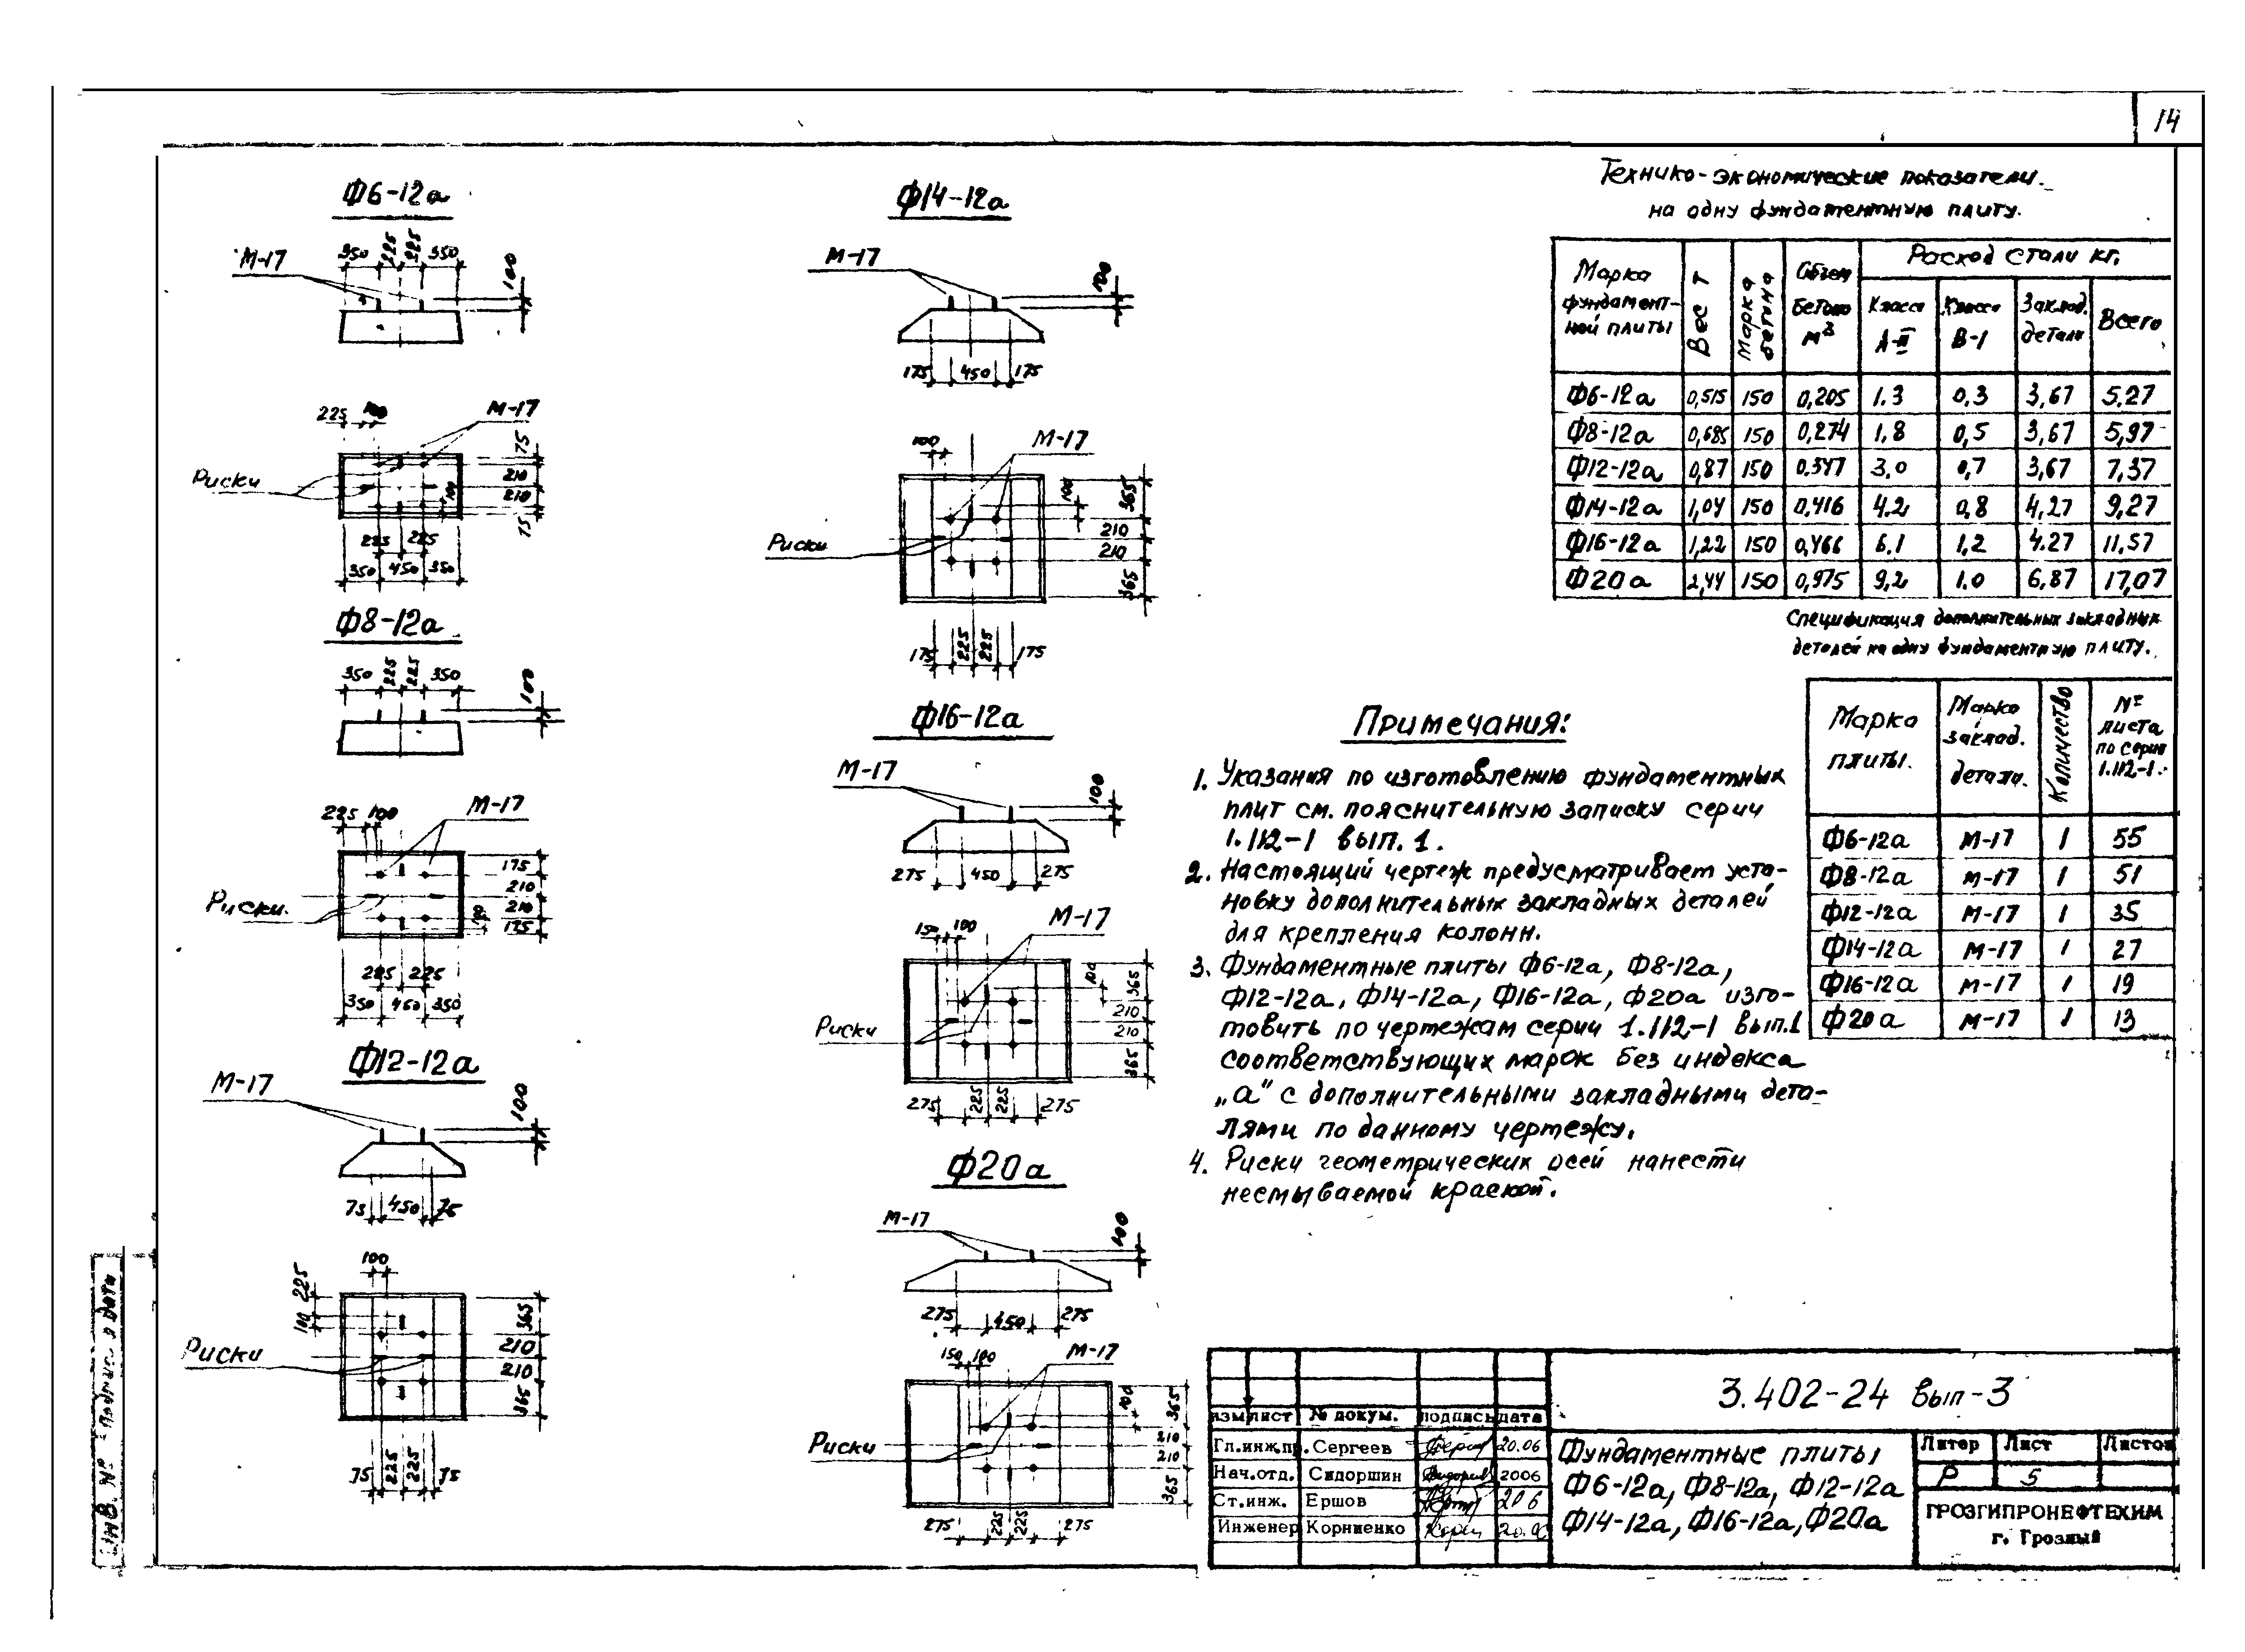 14
Ф6-12а
М-17
350 225 225 350
100
225 100
М-17
Риски
75
210
210
75
100
225 225
350 450 350
Ф8-12а
350 225 225 350
100
225 100
М-17
Риски.
175
210
210
175
100
225 225
350 450 350
Ф12-12а
М-17
100
75 450 75
100
225
100
Риски
365
210
210
365
75 225 225 75
Ф14-12а
М-17
100
175 450 175
100
М-17
Риски
100
365
210
210
365
175 225 225 175
Ф16-12а
М-17
100
275 450 275
150 100
М-17
Риски
100
365
210
210
365
275 225 225 275
Ф20а
М-17
100
275 450 275
150 100
М-17
Риски
100
365
210
210
365
275 225 225 275
Технико-экономические показатели.
на одну фундаментную плиту.
Марка фундаментной плиты | Вес Т | Марка бетона | Объем бетона м³ | Расход стали кг.
Класса А-II | Класса В-1 | Заклад. детали | Всего
Ф6-12а 0,515 150 0,205 1.3 0.3 3,67 5,27
Ф8-12а 0,685 150 0,274 1.8 0,5 3,67 5,97
Ф12-12а 0,87 150 0.347 3.0 0,7 3,67 7,37
Ф14-12а 1,04 150 0,416 4.2 0,8 4,27 9,27
Ф16-12а 1,22 150 0,466 6.1 1,2 4.27 11,57
Ф20а 2,44 150 0,975 9,2 1.0 6,87 17,07
Спецификация дополнительных закладных
деталей на одну фундаментную плиту.
Марка плиты. | Марка заклад. детали. | Количество | № листа по серии 1.112-1.
Ф6-12а М-17 1 55
Ф8-12а М-17 1 51
Ф12-12а М-17 1 35
Ф14-12а М-17 1 27
Ф16-12а М-17 1 19
Ф20а М-17 1 13
Примечания:
1. Указания по изготовлению фундаментных
плит см. пояснительную записку серии
1.112-1 вып. 1.
2. Настоящий чертеж предусматривает уста-
новку дополнительных закладных деталей
для крепления колонн.
3. Фундаментные плиты Ф6-12а, Ф8-12а,
Ф12-12а, Ф14-12а, Ф16-12а, Ф20а изго-
товить по чертежам серии 1.112-1 вып.1
соответствующих марок без индекса
„а" с дополнительными закладными дета-
лями по данному чертежу.
4. Риски геометрических осей нанести
несмываемой краской.
изм лист № докум. подпись дата
Гл.инж.пр. Сергеев 20.06
Нач.отд. Сидоршин 2006
Ст.инж. Ершов 206
Инженер Корниенко
3.402-24 вып-3
Фундаментные плиты
Ф6-12а, Ф8-12а, Ф12-12а
Ф14-12а, Ф16-12а, Ф20а
Литер Лист Листов
Р 5
ГРОЗГИПРОНЕФТЕХИМ
г. Грозный
Инв. № Подпись и дата